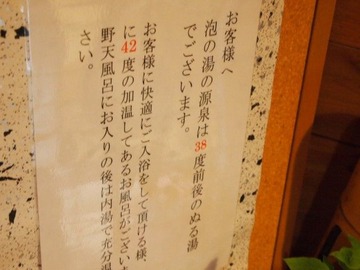 お客様へ
泡の湯の源泉は38度前後のぬる湯
でございます。
お客様に快適にご入浴をして頂ける様、
に42度の加温してあるお風呂がございま
野天風呂にお入りの後は内湯で充分温
さい。